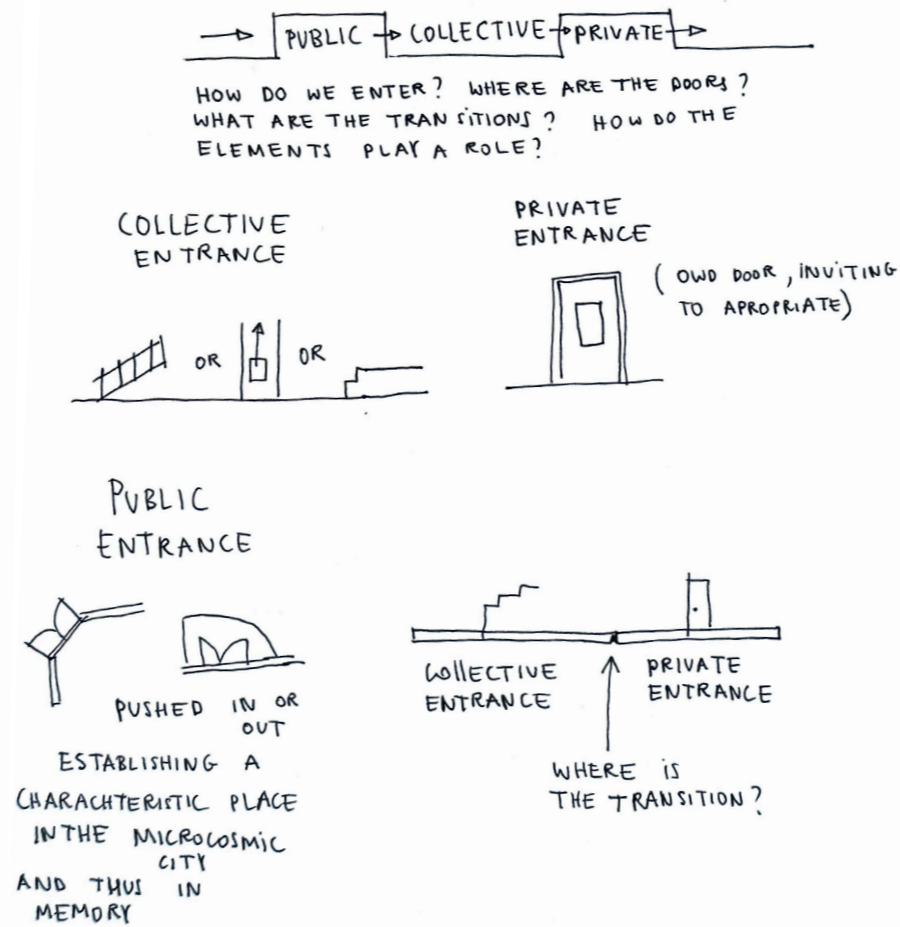 PUBLIC COLLECTIVE PRIVATE
HOW DO WE ENTER? WHERE ARE THE DOORS?
WHAT ARE THE TRANSITIONS? HOW DO THE
ELEMENTS PLAY A ROLE?
COLLECTIVE
ENTRANCE
OR OR
PRIVATE
ENTRANCE
(OWD DOOR, INVITING
TO APROPRIATE)
PUBLIC
ENTRANCE
PUSHED IN OR
OUT
ESTABLISHING A
CHARACHTERISTIC PLACE
IN THE MICROCOSMIC
CITY
AND THUS IN
MEMORY
COLLECTIVE
ENTRANCE
PRIVATE
ENTRANCE
WHERE IS
THE TRANSITION?